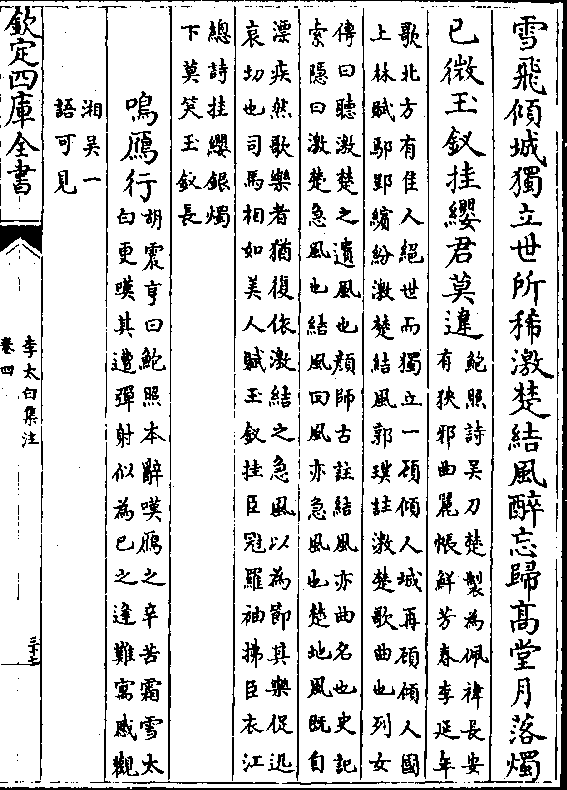 雪飛傾城獨立世所稀激楚結風醉忘歸高堂月落燭
已微玉釵挂纓君莫違
鮑照詩吳刀楚製為佩褘長安
有狹邪曲麗帳鮮芳春李延年
歌北方有佳人絕世而獨立一顧傾人城再顧傾人國
上林賦鄢郢繽紛激楚結風郭璞註激楚歌曲也列女
傳曰聽激楚之遺風也顏師古註結風亦曲名也史記
索隱曰激楚急風也結風回風亦急風也楚地風既自
漂疾然歌樂者猶復依激結之急風以為節其樂促迅
哀切也司馬相如美人賦玉釵挂臣冠羅袖拂臣衣江
總詩挂纓銀燭
下莫笑玉釵長
鳴鴈行
胡震亨曰鮑照本辭嘆鴈之辛苦霜雪太
白更嘆其遭彈射似為己之逢難寓感觀
湘吳一
語可見
欽定四庫全書
李太白集注
卷四
三十七